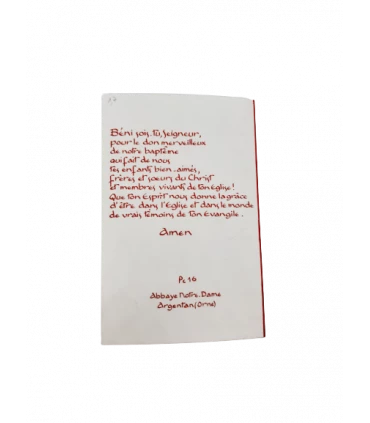 Béni sois-tu, Seigneur,
pour le don merveilleux
de notre baptême
qui fait de nous
tes enfants bien-aimés,
frères et soeurs du Christ
et membres vivants de ton Église !
Que ton Esprit nous donne la grâce
d'être dans l'Église et dans le monde
de vrais témoins de ton Évangile.
Amen
Pc 16
Abbaye Notre-Dame
Argentan (Orne)